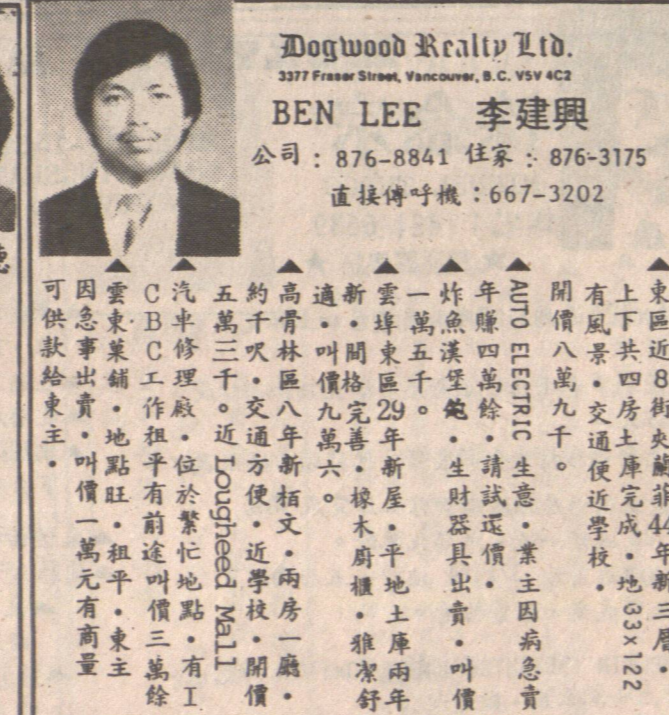 Dogwood Realty Ltd.
3377 Fraser Street, Vancouver, B.C. V5V 4C2
BEN LEE 李建興
公司：876-8841 住家：876-3175
直接傳呼機：667-3202
▲東區近8街央蘭菲44年新三層・
上下共四房土庫完成・地33×122
有風景・交通便近學校・
開價八萬九千。
▲AUTO ELECTRIC 生意・業主因病急賣
年賺四萬餘・請試還價・
▲炸魚漢堡舖・生財器具出賣・叫價
一萬五千。
▲雲埠東區29年新屋・平地土庫兩年
新・間格完善・橡木廚櫃・雅潔舒
適・叫價九萬六。
▲高骨林區八年新栢文・兩房一廳・
約千呎・交通方便・近學校・開價
五萬三千。近 Lougheed Mall
▲汽車修理廠・位於繁忙地點・有I
CBC工作租平有前途叫價三萬餘
▲雲東菓舖・地點旺・租平・東主
因急事出賣・叫價一萬元有商量
可供款給東主・